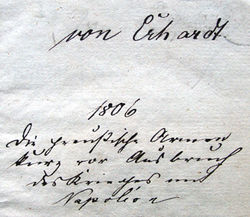 von Erhardt
1806
Die preußische Armee
kurz vor Ausbruch
des Krieges mit
Napoléon